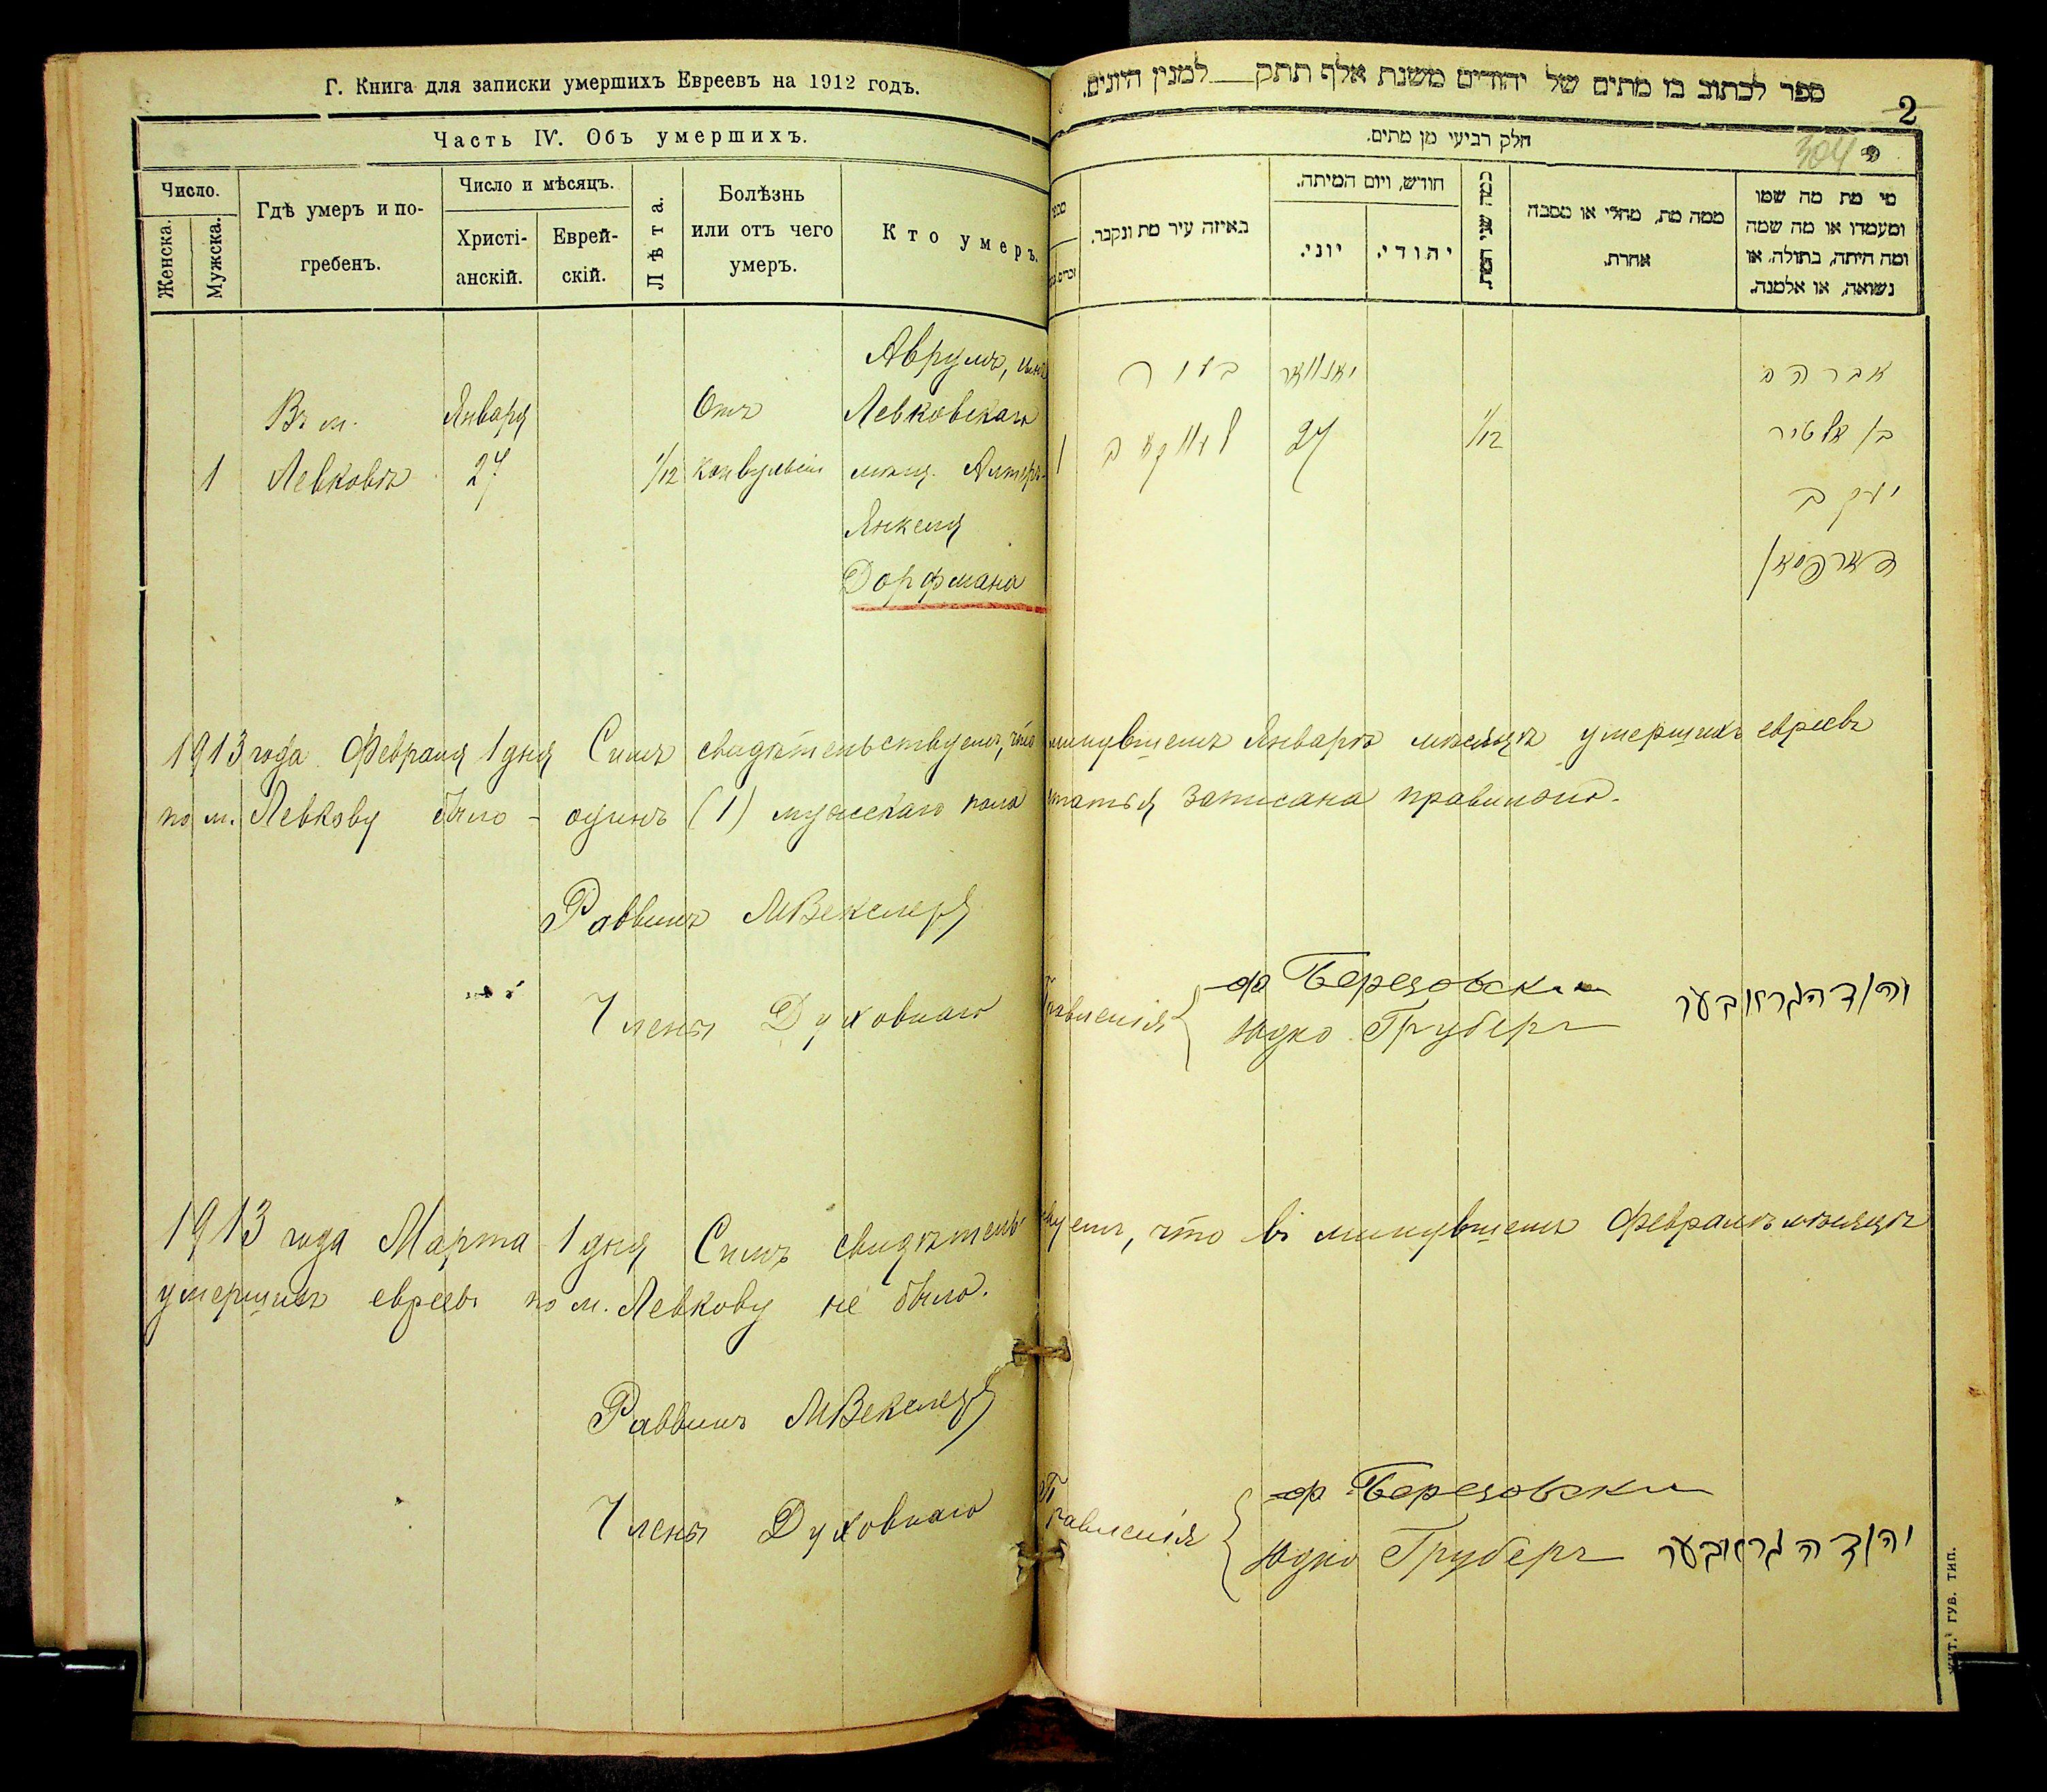 Г. Книга для записки умершихъ Евреевъ на 1912 годъ.
Часть IV. Объ умершихъ.
Число.
Женска.
Мужска.
Гдѣ умеръ и по-
гребенъ.
Число и мѣсяцъ.
Христі-
анскій.
Еврей-
скій.
Лѣта.
Болѣзнь
или отъ чего
умеръ.
Кто умеръ.
1
Въ м.
Левковѣ
Января
27
1/12
Отъ
конвульсіи
Аврумъ, сынъ
Левковскаго
мѣщ. Алтеръ-
Янкеля
Дорфмана
ספר לכתוב בו מתים של יהודים משנת אלף תתק למנין היונים.
2
304
חלק רביעי מן מתים.
באיזה עיר מת ונקבר.
חודש, ויום המיתה.
יוני.
יהודי.
כמה שני המת.
ממה מת, מחלי או מסבה
אחרת.
מי מת מה שמו
ומעמדו או מה שמה
ומה היתה, בתולה, או
נשואה, או אלמנה.
1
יאנוואר
27
1/12
אברהם
בן אלטיר
יעקב
דארפמאן
1913 года Февраля 1 дня Симъ свидѣтельствуемъ, что минувшемъ Январѣ мѣсяцѣ умершихъ евреевъ
по м. Левкову было - одинъ (1) мужескаго пола статья записана правильно.
Раввинъ МВекслеръ
Члены Духовнаго Правленія
Березовски
Юдко Груберъ
יהודה גרובער
1913 года Марта 1 дня Симъ свидѣтельствуемъ, что въ минувшемъ Февралѣ мѣсяцѣ
умершихъ евреевъ по м. Левкову не было.
Раввинъ МВекслеръ
Члены Духовнаго Правленія
Березовски
Юдко Груберъ
יהודה גרובער
Жит. Губ. Тип.